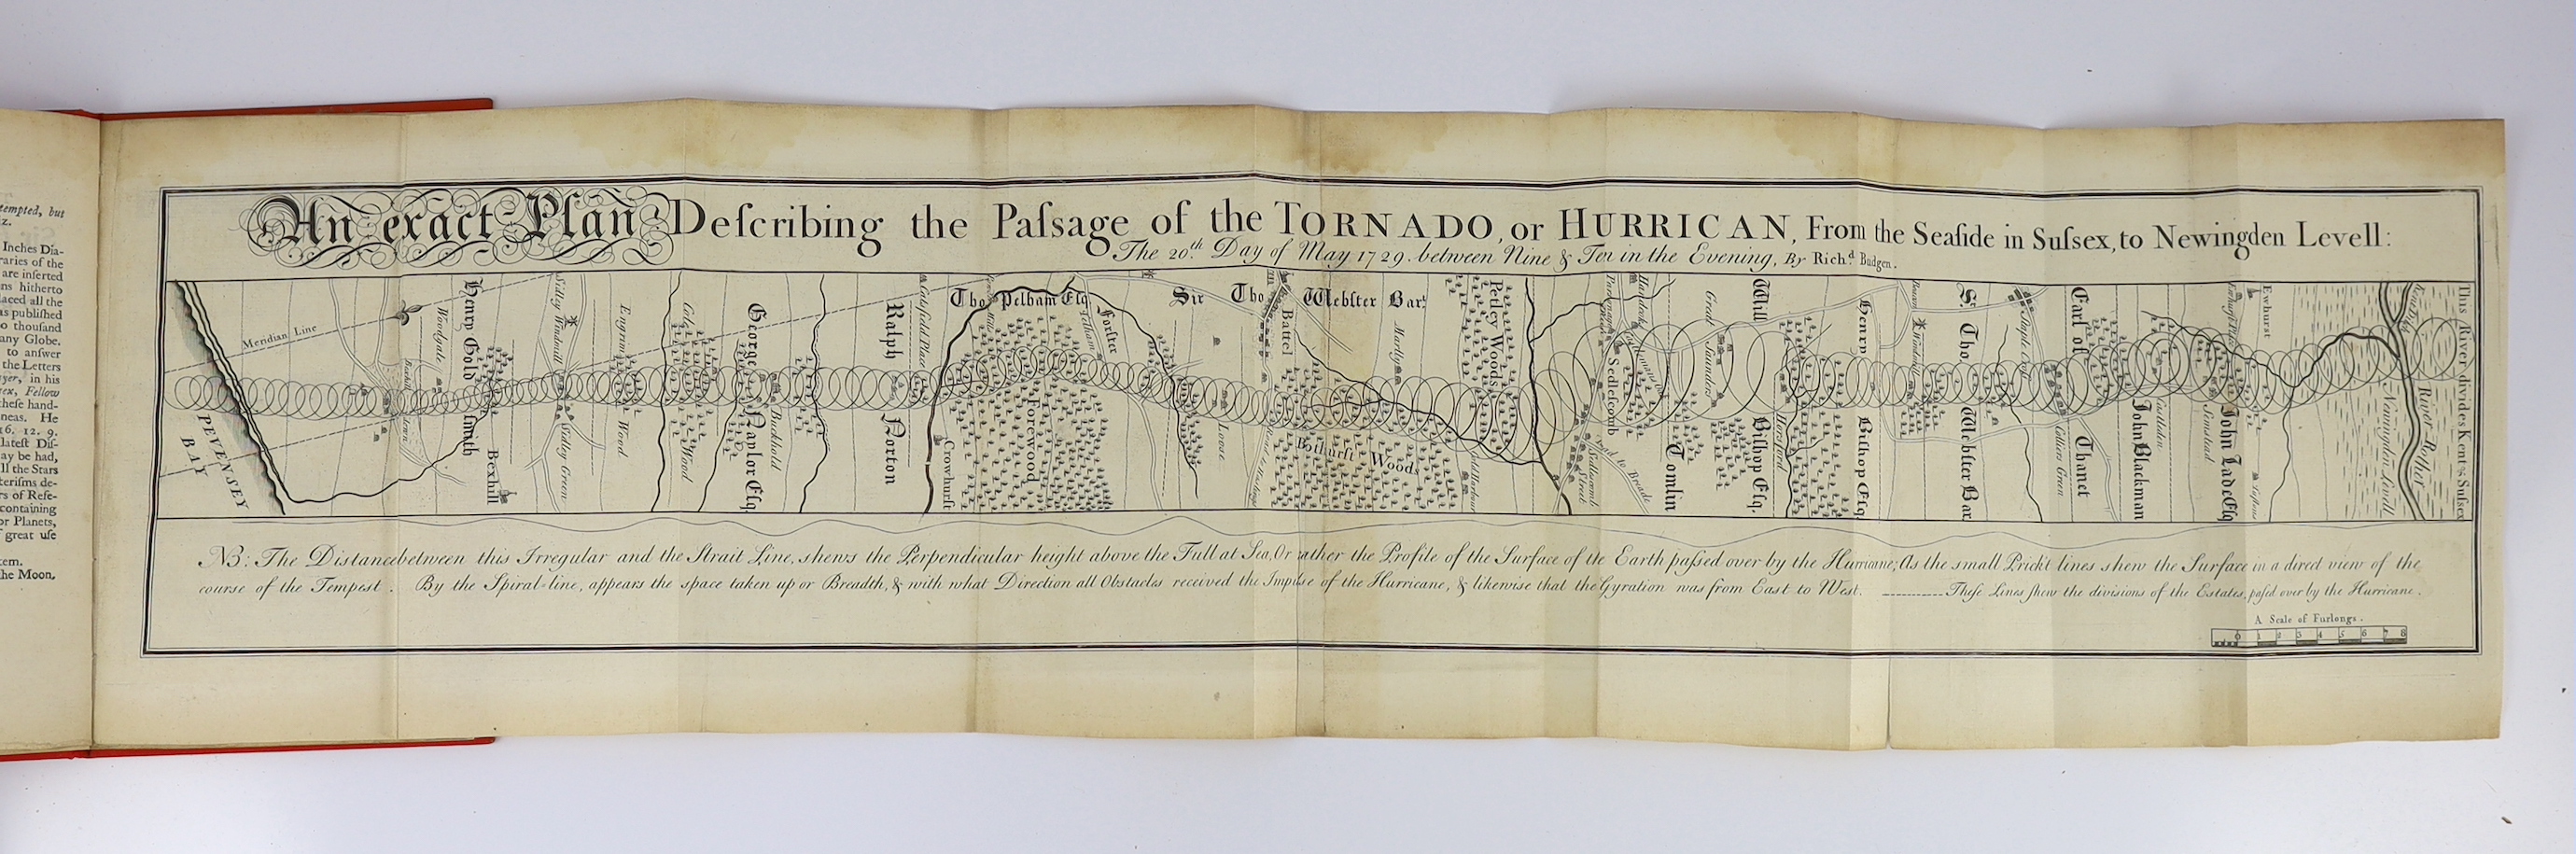 tempted, but
z.
Inches Dia-
raries of the
are inserted
ns hitherto
laced all the
as published
o thousand
any Globe.
to answer
the Letters
yer, in his
ex, Fellow
these hand-
neas. He
16. 12. 9.
latest Dis-
ay be had,
ll the Stars
terisms de-
rs of Refe-
containing
or Planets,
great use
tem.
he Moon,
An exact Plan Deſcribing the Paſsage of the TORNADO, or HURRICAN, From the Seaſide in Suſsex, to Newingden Levell:
The 20th. Day of May 1729. between Nine & Ten in the Evening, By Richd. Budgen.
PEVENSEY
BAY
Meridian Line
Woodgate
Henry Gold ſmith
Bexhill
Sidley Windmill
Sidley Green
Wood
Wood
George Naylor Eſq.
Buckhold
Ralph Norton
Catſfield Place
Crowhurſt
Tho Pelham Eſq
Forewood
Forſter
Sir Tho Webſter Bart
Battel
Looſe
Bothurſt Woods
Petley Woods
Sedlescomb
Sedlescomb Street
Great Saunders
Tomlin
Will Biſhop Eſq.
Henry Biſhop Eſq.
Sr. Tho. Webſter Bar.
Staple Croſs
Earl of Thanet
John Blackman
John Lade Eſq
Ewhurst
Newingden Levell
River Rother
This River divides Kent & Suſsex
NB: The Distance between this Irregular and the Strait Line, shews the Perpendicular height above the Full at Sea, Or rather the Profile of the Surface of the Earth paſsed over by the Hurricane; As the small Prick't lines shew the Surface in a direct view of the
course of the Tempest. By the Spiral-line, appears the space taken up or Breadth, & with what Direction all Obstacles received the Impulse of the Hurricane, & likewise that the Gyration was from East to West. ---------- Theſe Lines ſhew the divisions of the Estates, paſsed over by the Hurricane.
A Scale of Furlongs.
0 1 2 3 4 5 6 7 8